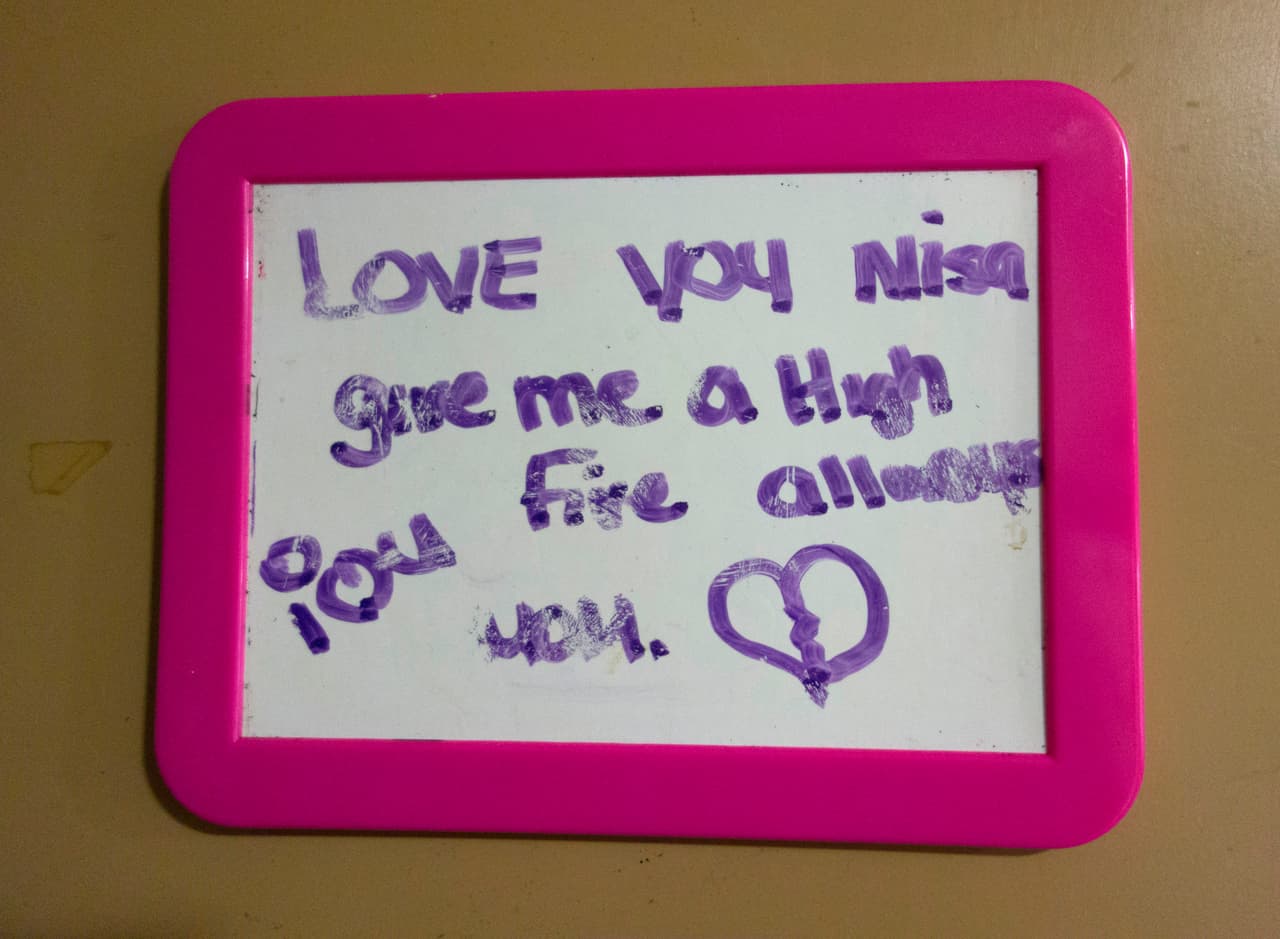 LOVE YOU Nisa
give me a High
Five allways
you.